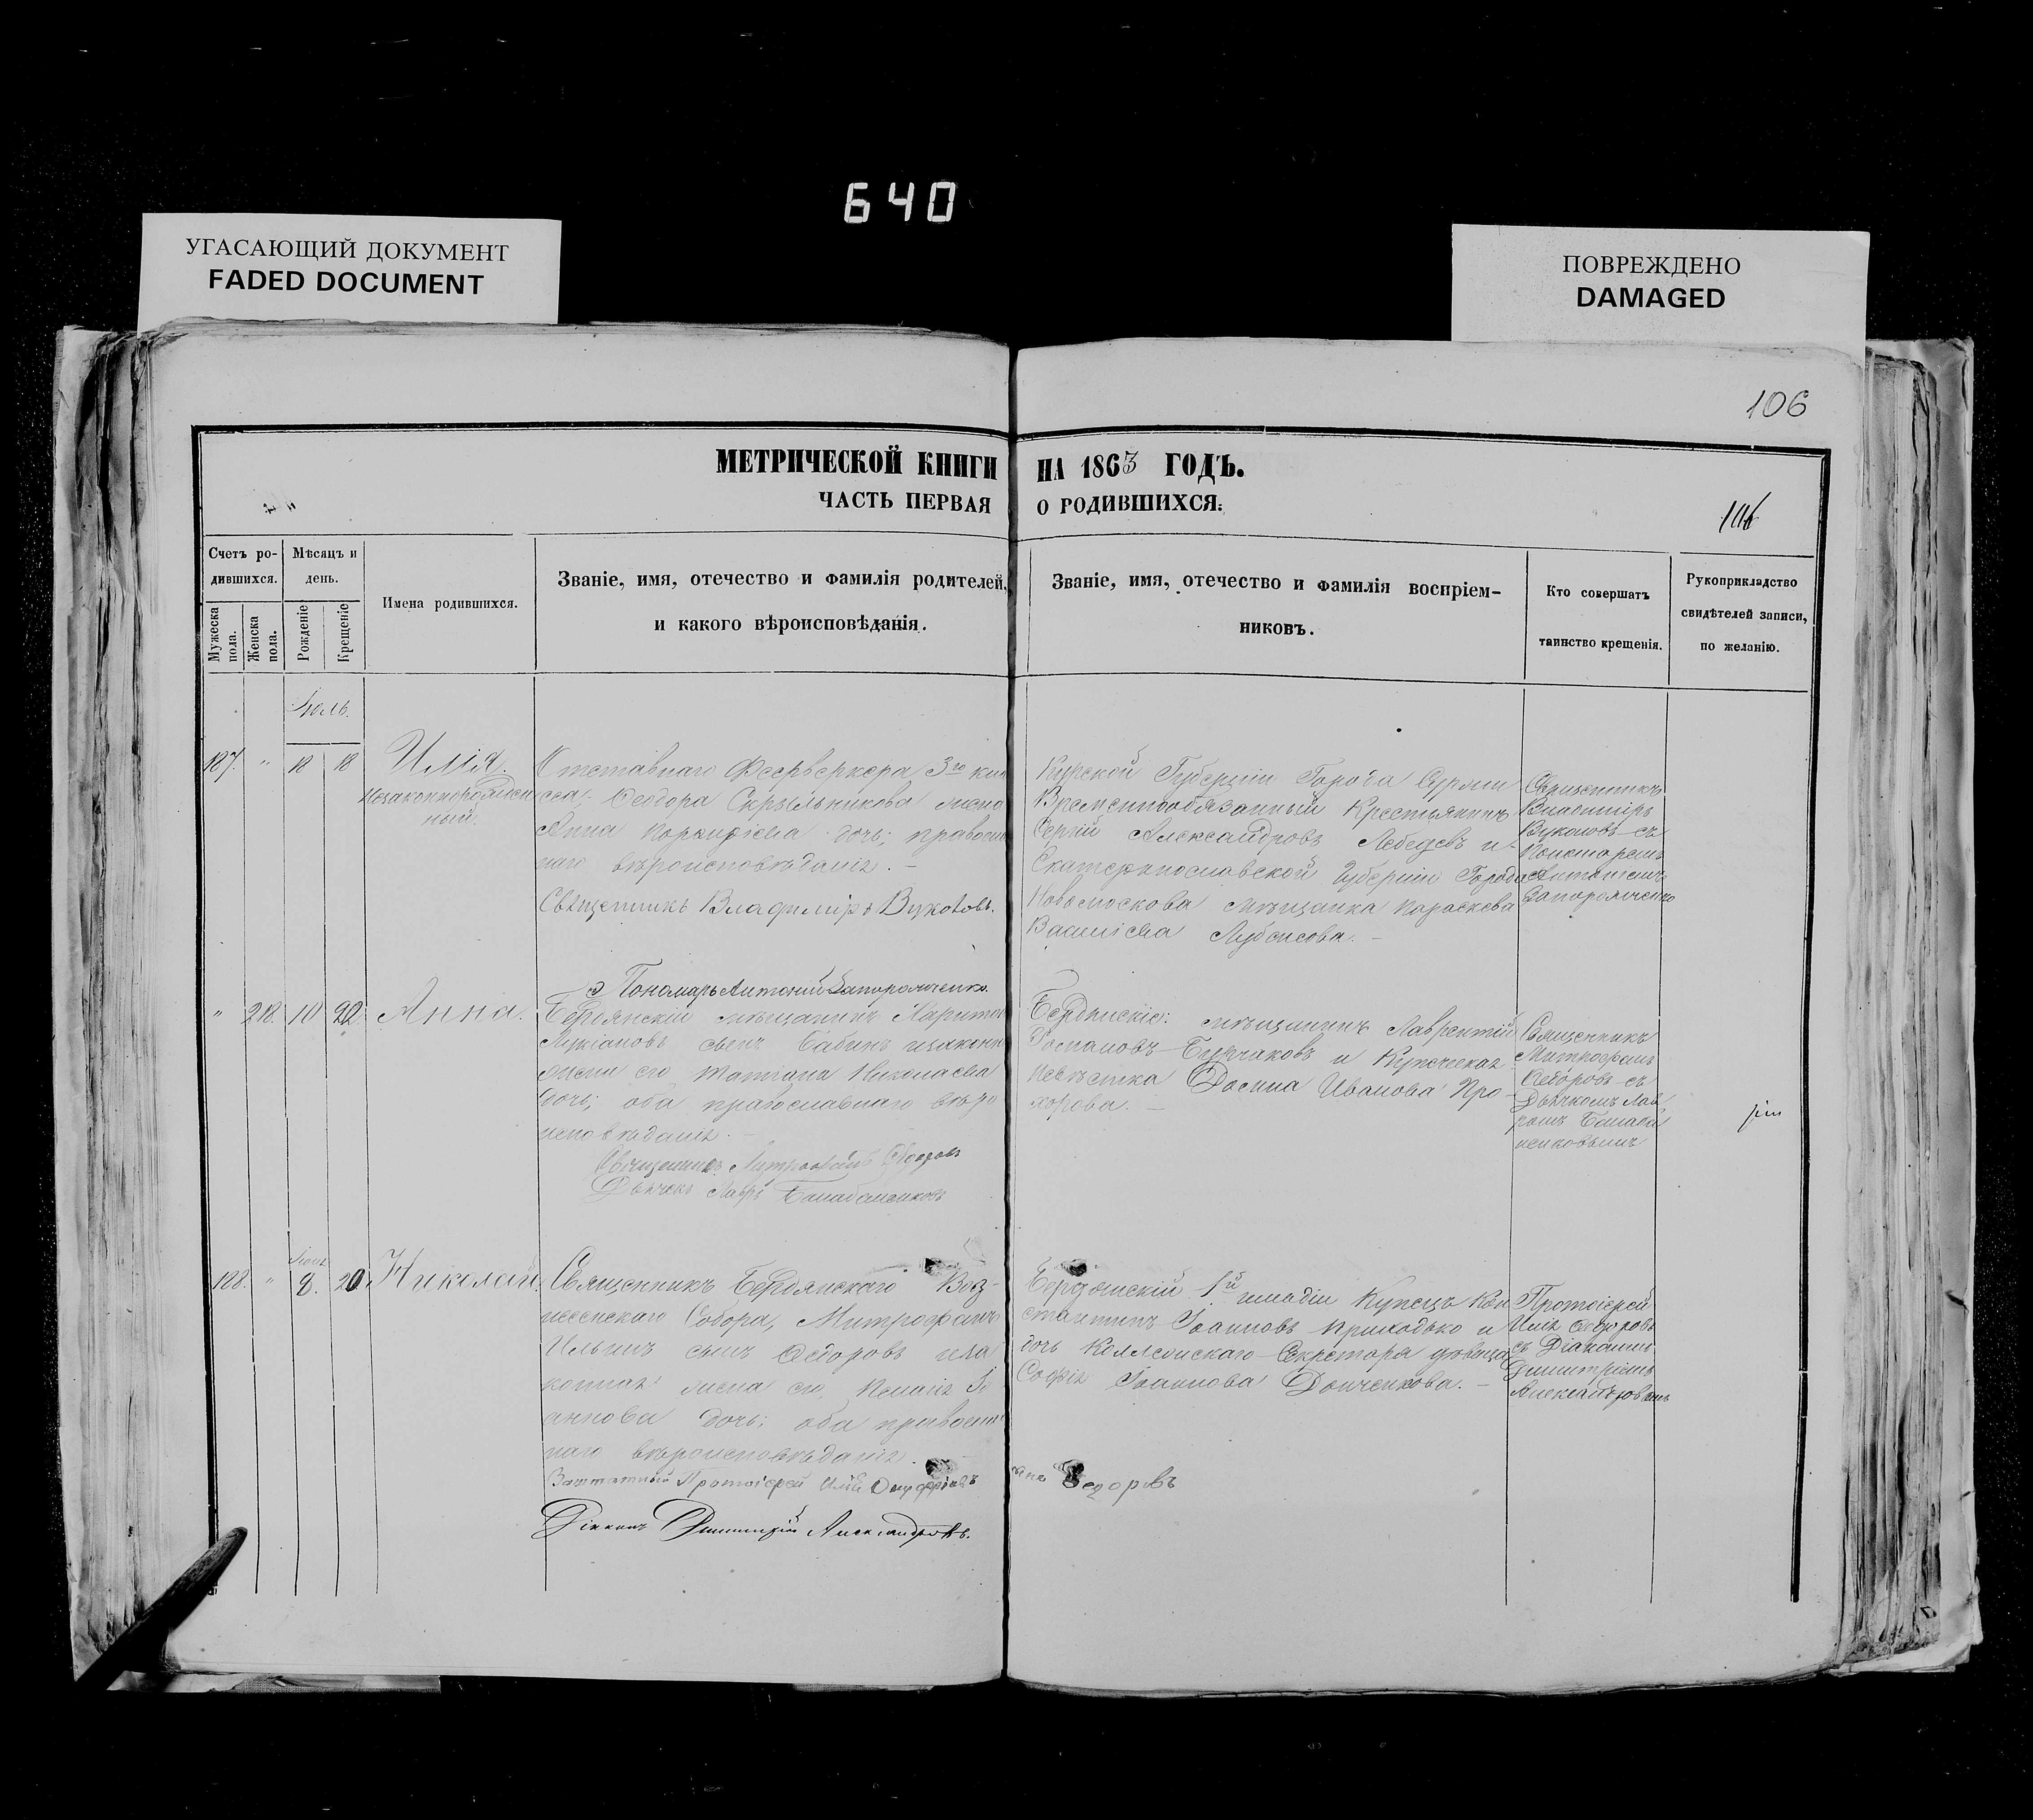 640
УГАСАЮЩИЙ ДОКУМЕНТ
FADED DOCUMENT
ПОВРЕЖДЕНО
DAMAGED
106
МЕТРИЧЕСКОЙ КНИГИ НА 1863 ГОДЪ.
ЧАСТЬ ПЕРВАЯ О РОДИВШИХСЯ:
106
Счетъ ро-
дившихся.
Мужеска пола.
Женска пола.
Мѣсяцъ и
день.
Рожденіе
Крещеніе
Имена родившихся.
Званіе, имя, отечество и фамилія родителей,
и какого вѣроисповѣданія.
Званіе, имя, отечество и фамилія воспріем-
никовъ.
Кто совершатъ
таинство крещенія.
Рукоприкладство
свидѣтелей записи,
по желанію.
Іюль.
187. " 18 18
Илія.
незаконнорожден
ный.
Отставнаго Феерверкера 3го кла
сса, Ѳеодора Скрыльникова жена
Анна дочь; правосла
наго вѣроисповѣданія. –
Священникъ Владиміръ Вуколовъ.
Пономарь Антоній Запорожченко.
Курской Губерніи Города
Временнообязанный Крестьянинъ
Сергій Александровъ Лебедевъ и
Екатеринославской Губерніи Города
Новомоскова мѣщанка Параскева
Василіева –
Священникъ
Владиміръ
Вуколовъ съ
Пономаремъ
Антоніемъ
Запорожченко
" 218. 10 20
Анна.
Бердянскій мѣщанинъ Харитон
Лукіановъ сынъ Бабинъ и законн
жена его Татіана Николаева
дочь; оба православнаго вѣро
исповѣданія. –
Священникъ Митрофанъ Ѳедоровъ
Дьячекъ Лавръ
Бердянскіе: мѣщанинъ Лаврентій
Романовъ и Купеческая
невѣстка Іванова Про-
хорова. –
Священникъ
Митрофанъ
Ѳедоровъ съ
Дьячкомъ Лав
ромъ
188. " 8. 20.
Николай.
Священникъ Бердянскаго Воз-
несенскаго Собора, Митрофанъ
Ильинъ сынъ Ѳедоровъ и за
конная жена его, Іо
аннова дочь; оба правосла
наго вѣроисповѣданія.
Заштатный Протоіерей Илія
Ѳедоровъ
Діаконъ Димитрій Александровъ.
Бердянскій 1й гильдіи Купецъ Кон
стантинъ Іоанновъ Приходько и
дочь Коллежскаго Секретаря дѣвица
Софія Іоаннова Донченкова. –
Протоіерей
Илія Ѳедоровъ
съ Діакономъ
Димитріемъ
Александровымъ